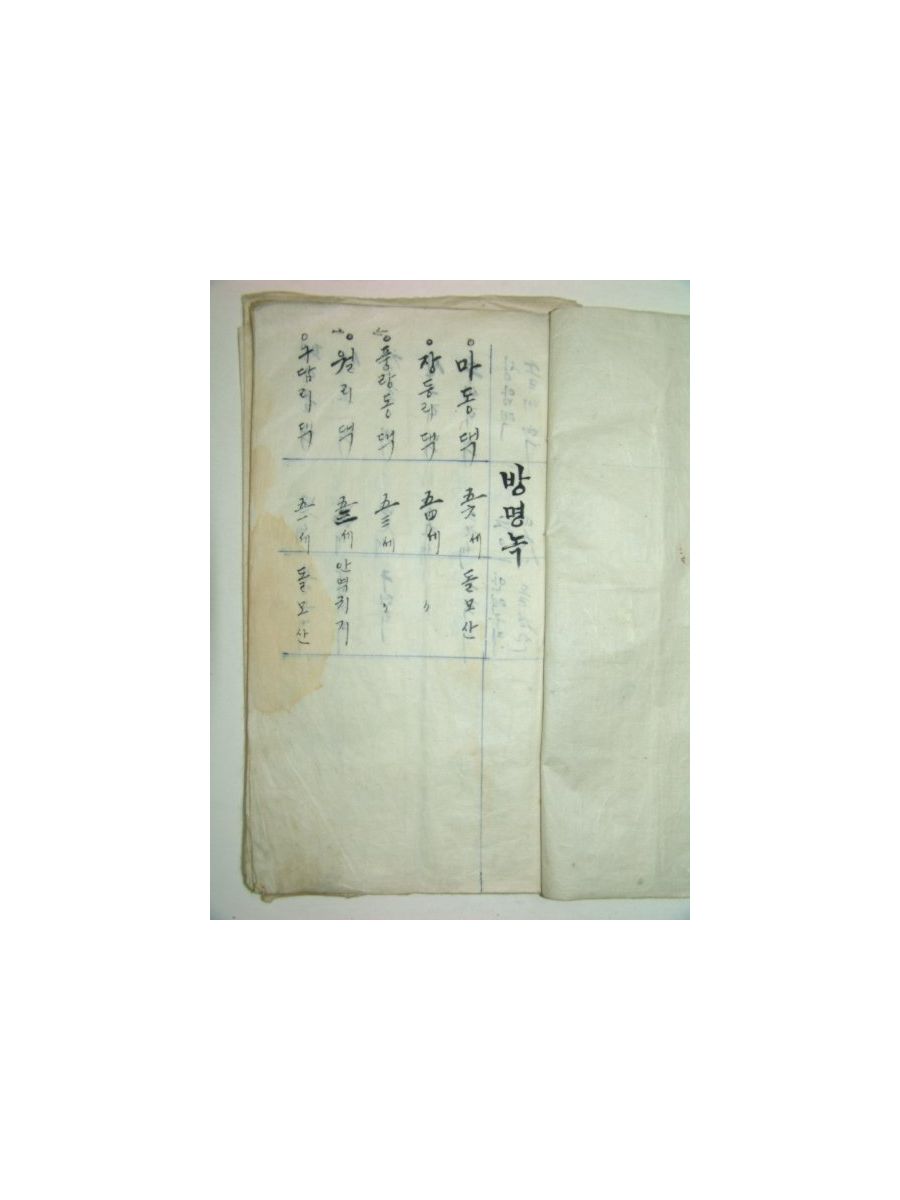 방명녹
마동댁 五六세 돌모산
장동리댁 五四세 〃
풍랑동댁 五三세 〃
월리댁 五三세 안역리지
구담리댁 五一세 돌모산